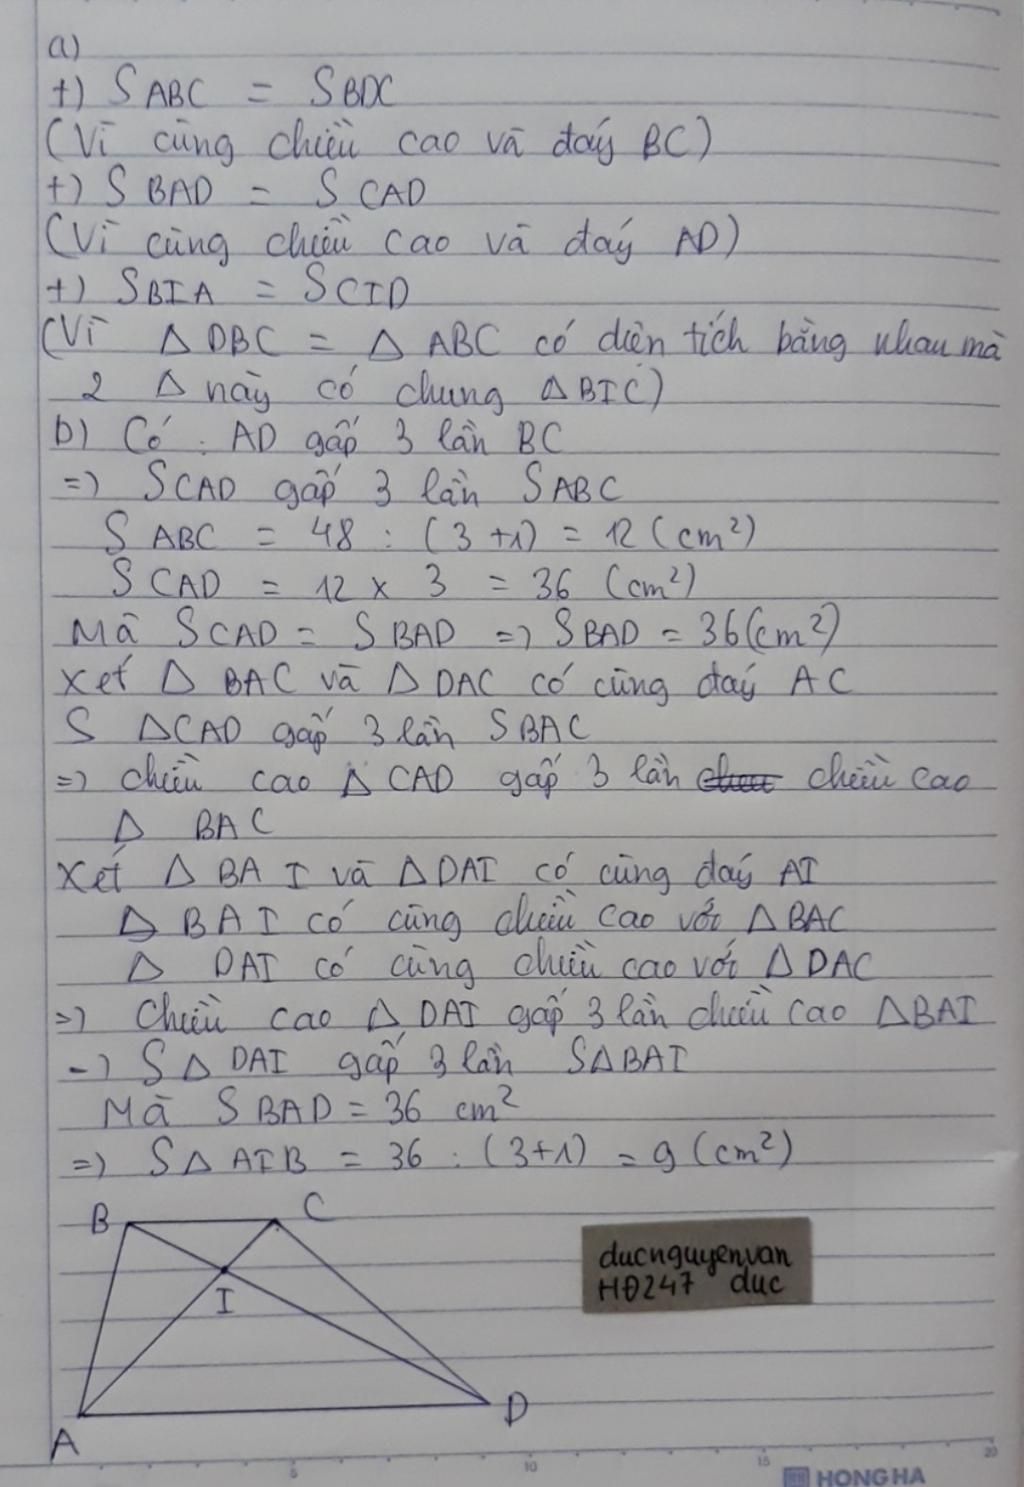 a)
+) S ABC = SBDC
(Vì cùng chiều cao và đáy BC)
+) S BAD = S CAD
(Vì cùng chiều cao và đáy AD)
+) SBIA = SCID
(Vì Δ DBC = Δ ABC có diện tích bằng nhau mà
2 Δ này có chung ΔBIC)
b) Có : AD gấp 3 lần BC
=) SCAD gấp 3 lần SABC
S ABC = 48 : (3+1) = 12 (cm²)
S CAD = 12 x 3 = 36 (cm²)
Mà SCAD = SBAD =) SBAD = 36(cm²)
Xét Δ BAC và Δ DAC có cùng đáy AC
S ΔCAD gấp 3 lần SBAC
=) chiều cao Δ CAD gấp 3 lần chiều cao
Δ BAC
Xét Δ BAI và ΔDAI có cùng đáy AI
Δ BAI có cùng chiều cao với ΔBAC
Δ DAI có cùng chiều cao với ΔDAC
=) Chiều cao ΔDAI gấp 3 lần chiều cao ΔBAI
-) SΔ DAI gấp 3 lần SΔBAI
Mà SBAD = 36 cm²
=) SΔ AIB = 36 : (3+1) = 9 (cm²)
B C
ducnguyenvan
HĐ247 duc
I
D
A
5 10 15 20
HONG HA